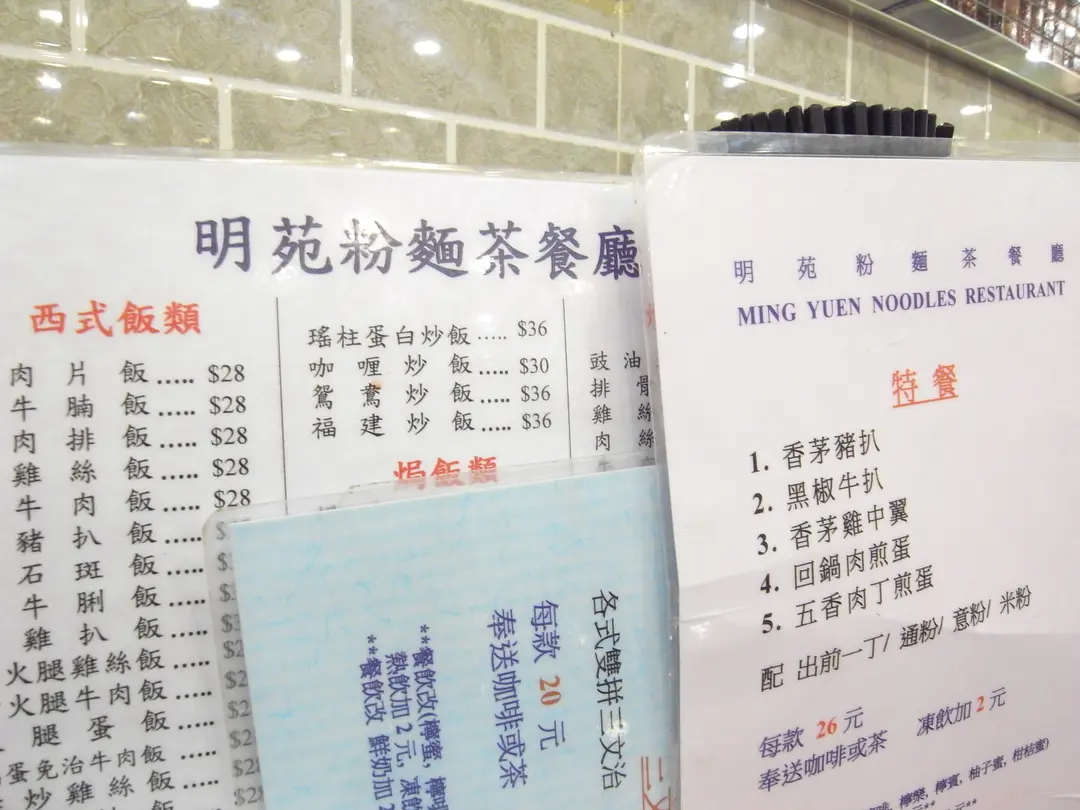 明苑粉麵茶餐廳
西式飯類
肉片飯..... $28
牛腩飯..... $28
肉排飯..... $28
雞絲飯..... $28
牛肉飯..... $28
豬扒飯.....
石斑飯.....
牛脷飯.....
雞扒飯.....
火腿雞絲飯.....
火腿牛肉飯.....
腿蛋飯.....
蛋免治牛肉飯.....
炒雞絲飯.....
瑤柱蛋白炒飯..... $36
咖喱炒飯..... $30
鴛鴦炒飯..... $36
福建炒飯..... $36
焗飯類
豉油
排骨
雞絲
肉絲
各式雙拼三文治
每款 20 元
奉送咖啡或茶
**餐飲改(檸蜜,
熱飲加2元,
**餐飲改 鮮奶加
明苑粉麵茶餐廳
MING YUEN NOODLES RESTAURANT
特餐
1. 香茅豬扒
2. 黑椒牛扒
3. 香茅雞中翼
4. 回鍋肉煎蛋
5. 五香肉丁煎蛋
配 出前一丁/ 通粉/ 意粉/ 米粉
每款 26 元 凍飲加2元
奉送咖啡或茶
檸樂, 檸賓, 柚子蜜, 柑桔蜜)